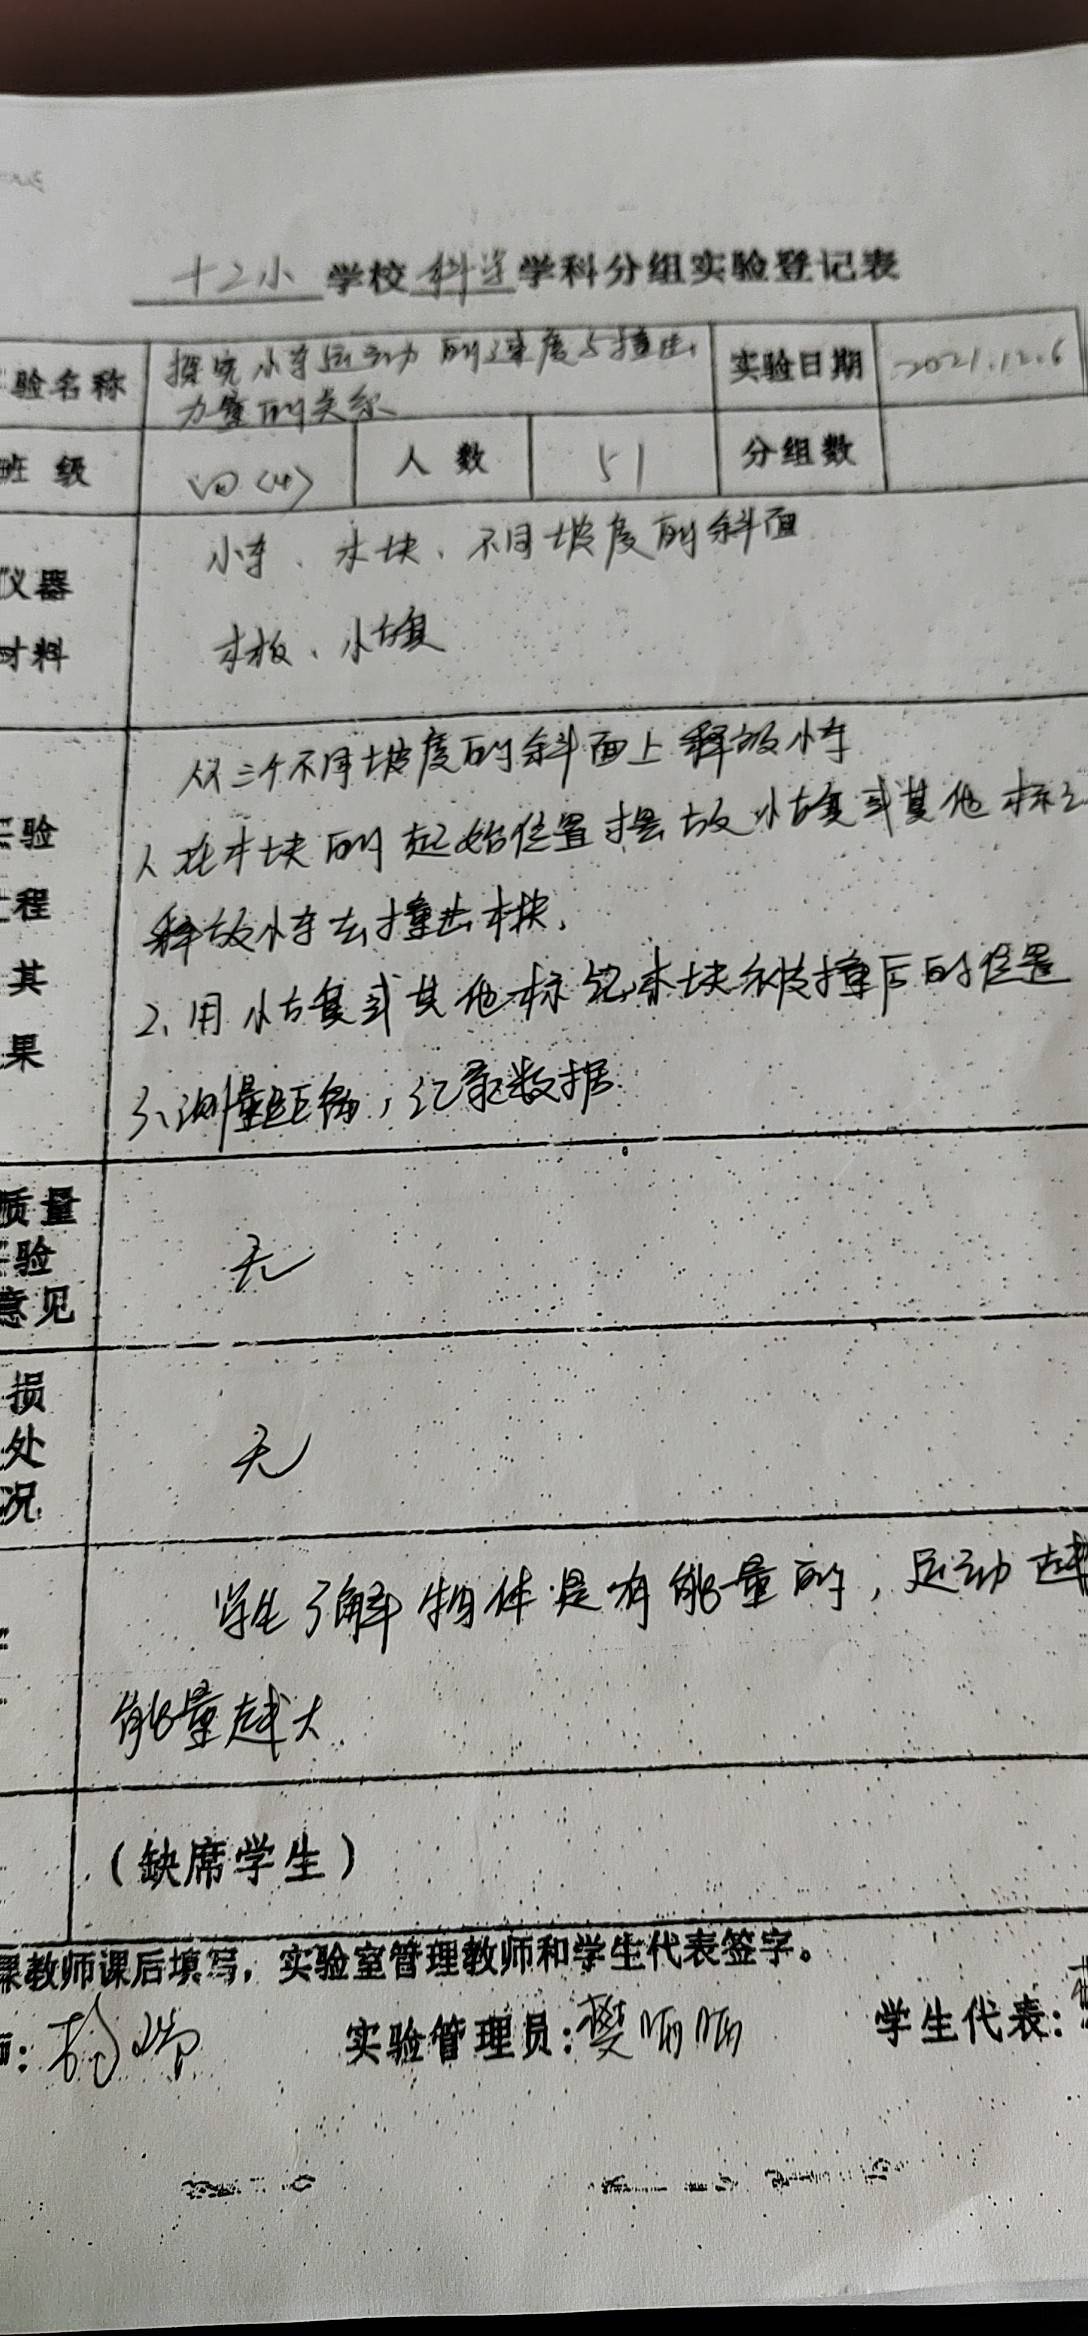 十二小 学校 科学 学科分组实验登记表
验名称 探究小车运动的速度与撞击 实验日期 2021.12.6
力量的关系
班 级 四(4) 人 数 51 分组数
仪器 小车、木块、不同坡度的斜面
材料 木板、小旗
从三个不同坡度的斜面上释放小车
实验 1、在木块的起始位置摆放小旗或其他标记
程 释放小车去撞击木块,
其 2、用小旗或其他标记木块被撞后的位置
果 3、测量距离,记录数据
质量
验 无
意见
损
处 无
况
学生了解物体是有能量的,运动越
能量越大
(缺席学生)
课教师课后填写,实验室管理教师和学生代表签字。
师: 实验管理员:樊丽丽 学生代表: